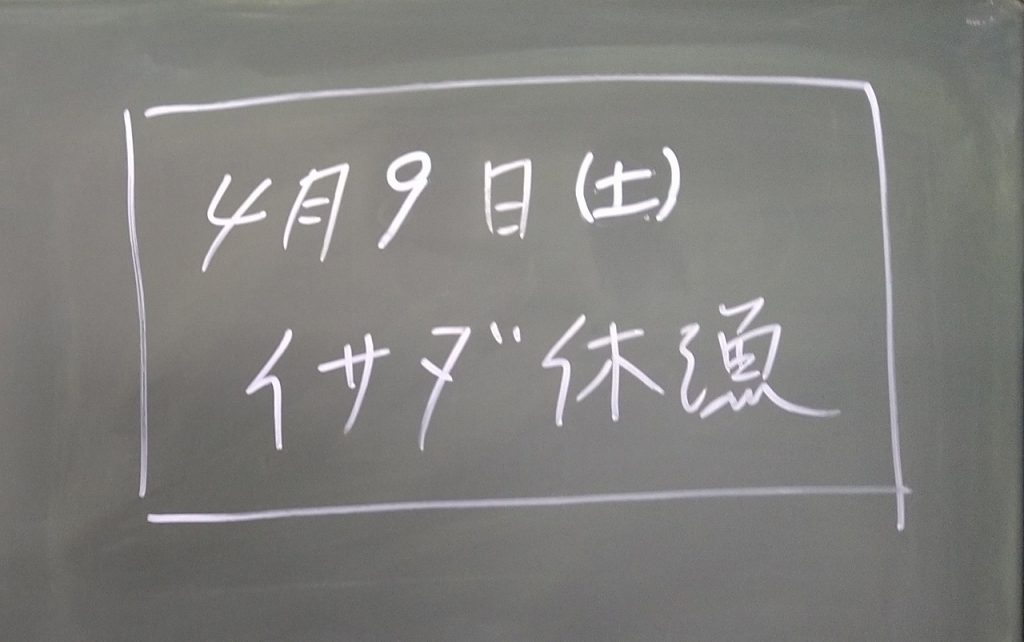 4月9日(土)
イサダ休漁